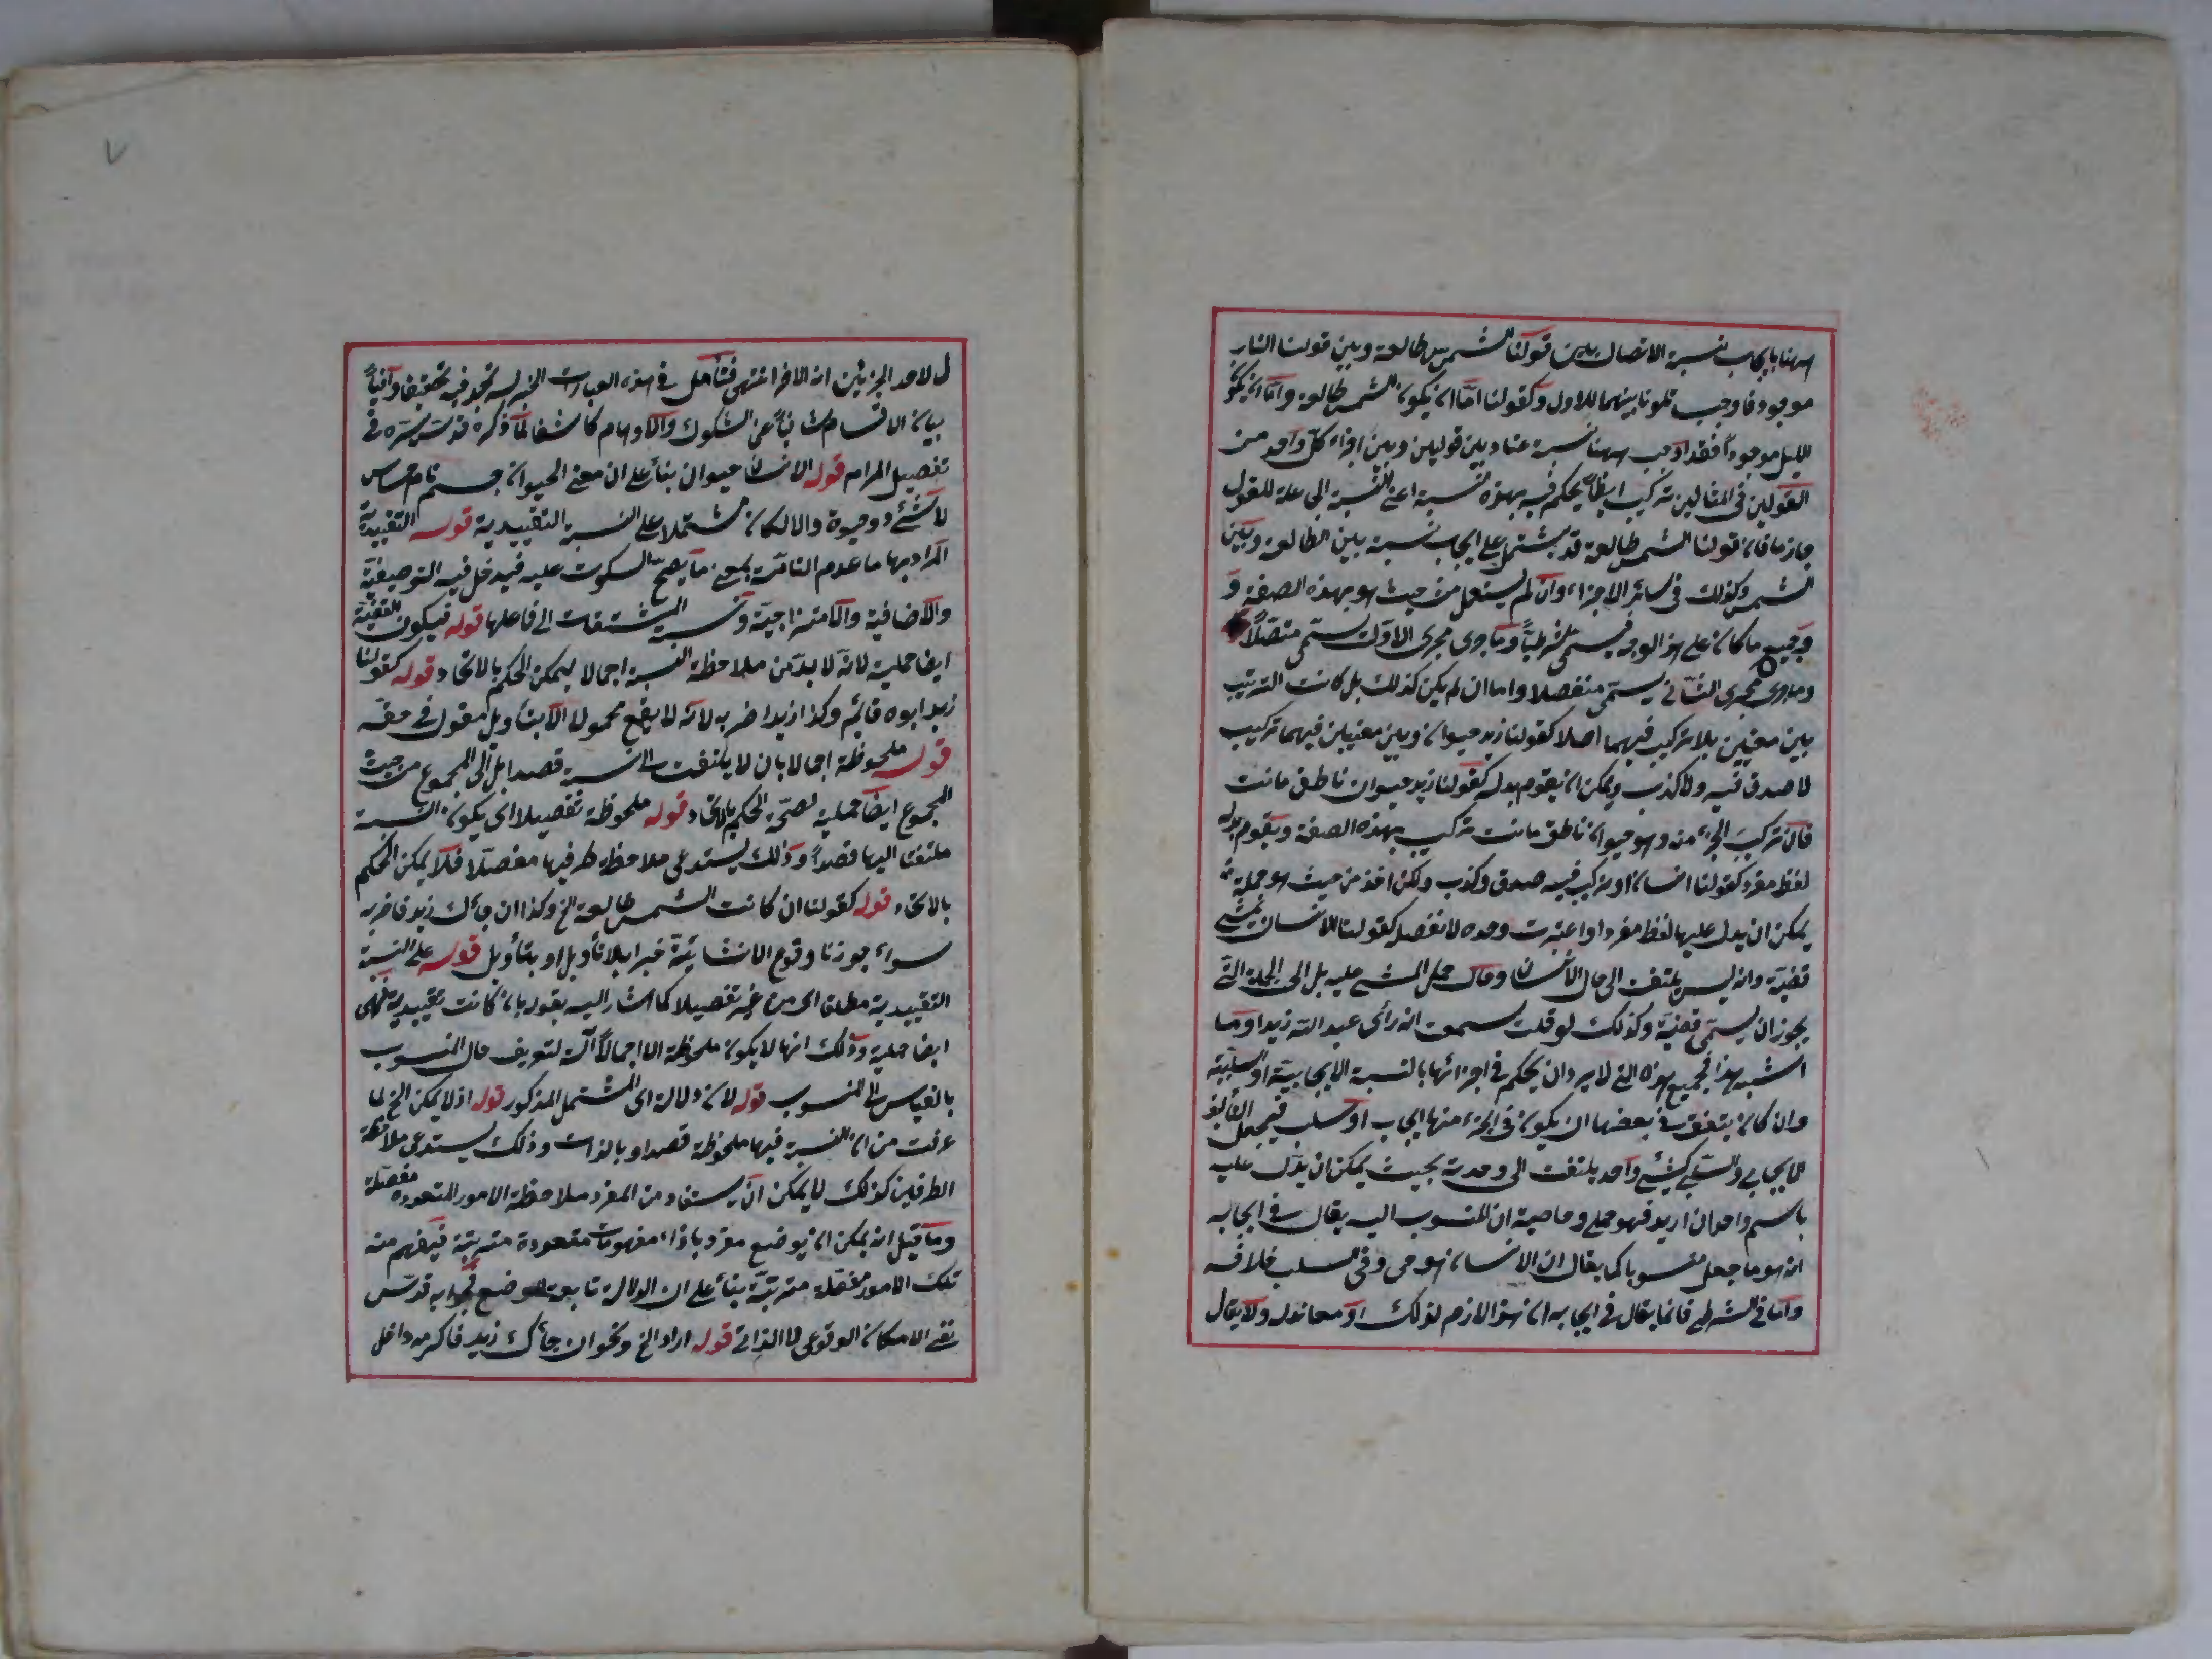 ههنا بايجاب نسبة الاتصال بين قولنا الشمس طالعة وبين قولنا النهار
موجود فاوجب تلونا بينهما للاول وكقولنا امّا ان يكون الشمس طالعة وامّا ان يكون
الليل موجوداً فقد اوجب ههنا نسبة عناد بين قولين وبين اجزاء كلّ واحد من
القولين فى المثالين تركيب ايضاً يحكم فيه بهذه النسبة اعنى النسبة الى علة للقول
جازما فان قولنا الشمس طالعة قد يشتمل على ايجاب نسبة بين الطالعة وبين
الشمس وكذلك فى سائر الاجزاء وان لم يستعمل من حيث هو بهذه الصفة و
وجميع ما كان على هذا الوجه فيسمى شرطياً وما جرى مجرى الاول يسمّى متصلاً
وما جرى مجرى الثانى يسمّى منفصلا واما ان لم يكن كذلك بل كانت الترتيب
بين معنيين بلا تركيب فيهما اصلا كقولنا زيد حيوان وبين معنيين فيهما تركيب
لا صدق فيه ولا كذب ويمكن ان يقوم بدله كقولنا زيد حيوان ناطق مائت
فان تركيب الجزء منه وهو حيوان ناطق مائت تركيب بهذه الصفة ويقوم بدله
لفظ مفرد كقولنا انسان او تركيب فيه صدق وكذب ولكن اخذ من حيث هو جملة
يمكن ان يدل عليها لفظ مفرد او اعتبرت وحده لا تفصيله كقولنا الانسان يمشى
قضيّة وانه ليس يلتفت الى حال الانسان وحال حمل المشى عليه بل الى الجملة التى
يجوز ان يسمّى قضيّة وكذلك لو قلت سمعت انه رأى عبد الله زيدا وما
اشبه هذا فجميع هذه التى لا يراد ان يحكم فى اجزائها بالنسبة الايجابيّة او السلبيّة
وان كان يتفق فى بعضها ان يكون فى الجزء منها ايجاب او سلب فيجعل التأليف
الايجابى والسلبى كشئ واحد يلتفت الى وحدته بحيث يمكن ان يدل عليه
باسم واحد ان اريد فهو حملى وخاصيته ان المنسوب اليه يقال فى ايجابه
انه هو ما جعل منسوبا كما يقال ان الانسان هو حى وفى السلب خلافه
وامّا فى الشرطى فانما يقال فى ايجابه ان هذا لازم لذلك او معاند له ولا يقال
ل لاحد الجزئين انه الاخر انتهى فتأمل فى هذه العبارات الجزلة تجد فيه تحقيقا وافياً
بيان الاقسام شافياً عن الشكوك والاوهام كاشفا لما ذكره قدس سره فى
تفصيل المرام قوله الانسان حيوان بناء على ان معنى الحيوان جسم نام حساس
لا شئ ذو حيوة والا لكان مشتملا على النسبة التقييدية قوله التقييديّة
المراد بها ما عدم التامّة بمعنى ما يصحّ السكوت عليه فيدخل فيه التوصيفيّة
والاضافية والامتزاجيّة ونسبة المشتقات الى فاعلها قوله فيكون القضيّة
ايضا حملية لانّه لا بدّ من ملاحظة النسبة اجمالا ليمكن الحكم بالاتحاد قوله كقولنا
زيد ابوه قائم وكذا زيد اضربه لانّه لا يقع محمولا الا بتأويل مقول فى حقّه
قوله ملحوظة اجمالا بان لا يلتفت الى النسبة قصدا بل الى المجموع من حيث
المجموع ايضاً حملية لصحّة الحكم بالاتحاد قوله ملحوظة تفصيلا اى يكون النسبة
ملتفتا اليها قصداً وذلك يستدعى ملاحظة طرفيها مفصّلا فلا يمكن الحكم
بالاتحاد قوله كقولنا ان كانت الشمس طالعة الخ وكذا ان جاءك زيد فاضربه
سواء جوزنا وقوع الانشائيّة خبرا بلا تأويل او بتأويل قوله على النسبة
التقييدية مطلقا اى من غير تفصيلا كما اشار اليه بقوله بان كانت تقييدية فهى
ايضا حملية وذلك انها لا يكون ملحوظة الا اجمالاً آلة لتعريف حال المنسوب
بالقياس الى المنسوب قوله لان دلالة اى المشتمل المذكور قوله اذ لا يمكن الخ لما
عرفت من ان النسبة فيها ملحوظة قصدا وبالذات وذلك يستدعى ملاحظة
الطرفين كذلك لا يمكن ان يستفاد من المفرد ملاحظة الامور المتعددة مفصّلة
وما قيل انه يمكن ان يوضع مفرد بازاء مفهومات متعددة مترتبة فيفهم منه
تلك الامور مفصّلة مترتبّة بناء على ان الدلالة تابعة للوضع فجوابه قدس
نفى الامكان الوقوعى لا الذاتى قوله اراد الخ ونحو ان جاءك زيد فاكرمه داخل
٧